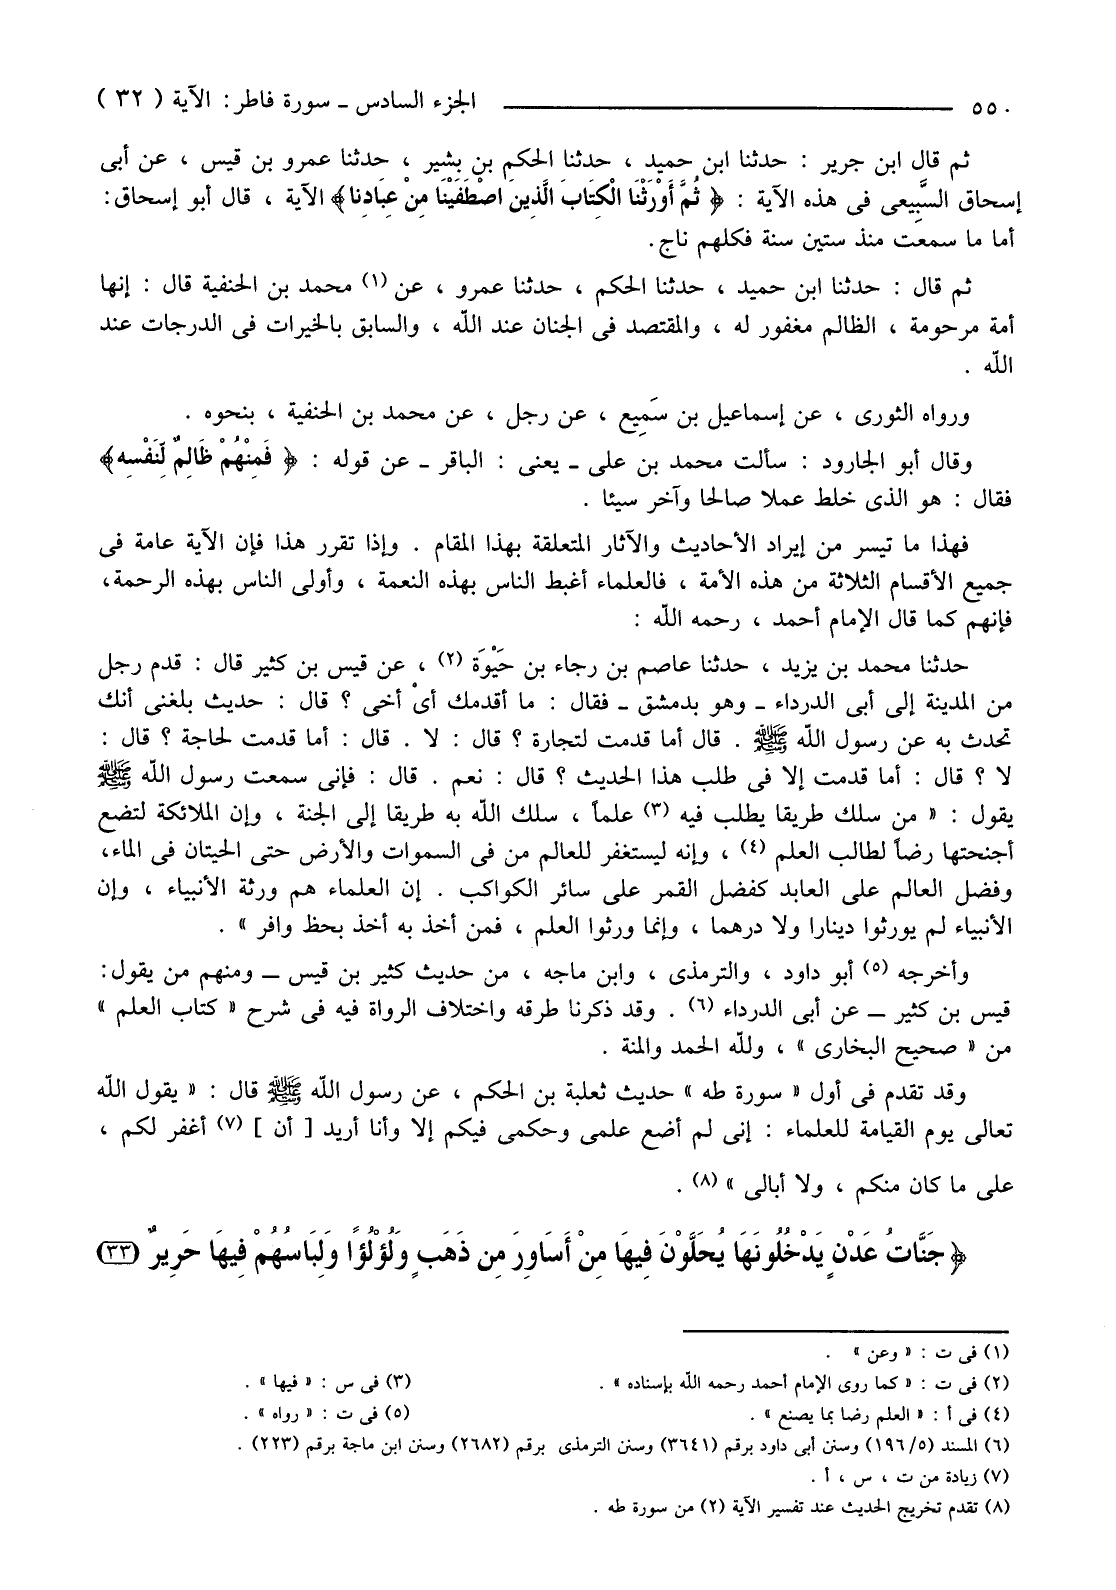 ٥٥٠ ـــــ الجزء السادس ـ سورة فاطر : الآية ( ٣٢ )
ثم قال ابن جرير : حدثنا ابن حميد ، حدثنا الحكم بن بشير ، حدثنا عمرو بن قيس ، عن أبى
إسحاق السَّبِيعى فى هذه الآية : ﴿ ثُمَّ أَوْرَثْنَا الْكِتَابَ الَّذِينَ اصْطَفَيْنَا مِنْ عِبَادِنَا﴾ الآية ، قال أبو إسحاق :
أما ما سمعت منذ ستين سنة فكلهم ناج.
ثم قال : حدثنا ابن حميد ، حدثنا الحكم ، حدثنا عمرو ، عن (١) محمد بن الحنفية قال : إنها
أمة مرحومة ، الظالم مغفور له ، والمقتصد فى الجنان عند الله ، والسابق بالخيرات فى الدرجات عند
الله .
ورواه الثورى ، عن إسماعيل بن سَمِيع ، عن رجل ، عن محمد بن الحنفية ، بنحوه .
وقال أبو الجارود : سألت محمد بن على ـ يعنى : الباقر ـ عن قوله : ﴿ فَمِنْهُمْ ظَالِمٌ لِّنَفْسِهِ﴾
فقال : هو الذى خلط عملا صالحا وآخر سيئا .
فهذا ما تيسر من إيراد الأحاديث والآثار المتعلقة بهذا المقام . وإذا تقرر هذا فإن الآية عامة فى
جميع الأقسام الثلاثة من هذه الأمة ، فالعلماء أغبط الناس بهذه النعمة ، وأولى الناس بهذه الرحمة،
فإنهم كما قال الإمام أحمد ، رحمه الله :
حدثنا محمد بن يزيد ، حدثنا عاصم بن رجاء بن حَيْوَة (٢) ، عن قيس بن كثير قال : قدم رجل
من المدينة إلى أبى الدرداء ـ وهو بدمشق ـ فقال : ما أقدمك أىْ أخى ؟ قال : حديث بلغنى أنك
تحدث به عن رسول الله ﷺ . قال أما قدمت لتجارة ؟ قال : لا . قال : أما قدمت لحاجة ؟ قال :
لا ؟ قال : أما قدمت إلا فى طلب هذا الحديث ؟ قال : نعم . قال : فإنى سمعت رسول الله ﷺ
يقول : « من سلك طريقا يطلب فيه (٣) علماً ، سلك الله به طريقا إلى الجنة ، وإن الملائكة لتضع
أجنحتها رضاً لطالب العلم (٤) ، وإنه ليستغفر للعالم من فى السموات والأرض حتى الحيتان فى الماء،
وفضل العالم على العابد كفضل القمر على سائر الكواكب . إن العلماء هم ورثة الأنبياء ، وإن
الأنبياء لم يورثوا دينارا ولا درهما ، وإنما ورثوا العلم ، فمن أخذ به أخذ بحظ وافر » .
وأخرجه (٥) أبو داود ، والترمذى ، وابن ماجه ، من حديث كثير بن قيس ــ ومنهم من يقول:
قيس بن كثير ــ عن أبى الدرداء (٦) . وقد ذكرنا طرقه واختلاف الرواة فيه فى شرح « كتاب العلم »
من « صحيح البخارى » ، ولله الحمد والمنة .
وقد تقدم فى أول « سورة طه » حديث ثعلبة بن الحكم ، عن رسول الله ﷺ قال : « يقول الله
تعالى يوم القيامة للعلماء : إنى لم أضع علمى وحكمى فيكم إلا وأنا أريد [ أن ] (٧) أغفر لكم ،
على ما كان منكم ، ولا أبالى » (٨) .
﴿ جَنَّاتُ عَدْنٍ يَدْخُلُونَهَا يُحَلَّوْنَ فِيهَا مِنْ أَسَاوِرَ مِن ذَهَبٍ وَلُؤْلُؤًا وَلِبَاسُهُمْ فِيهَا حَرِيرٌ (٣٣)
(١) فى ت : « وعن » .
(٢) فى ت : « كما روى الإمام أحمد رحمه الله بإسناده » . (٣) فى س : « فيها » .
(٤) فى أ : « العلم رضا بما يصنع » . (٥) فى ت : « رواه » .
(٦) المسند (١٩٦/٥) وسنن أبى داود برقم (٣٦٤١) وسنن الترمذى برقم (٢٦٨٢) وسنن ابن ماجة برقم (٢٢٣) .
(٧) زيادة من ت ، س ، أ .
(٨) تقدم تخريج الحديث عند تفسير الآية (٢) من سورة طه .